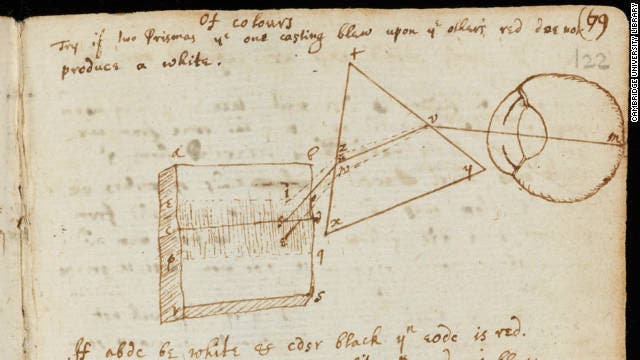 Of colours
(69
Try if two Prismas yᵉ one casting blew upon yᵉ other's red doe not
produce a white.
122
t
v
m
y
x
a
b
c
q
s
If abdc be white & cdsr black yⁿ eodc is red.
CAMBRIDGE UNIVERSITY LIBRARY